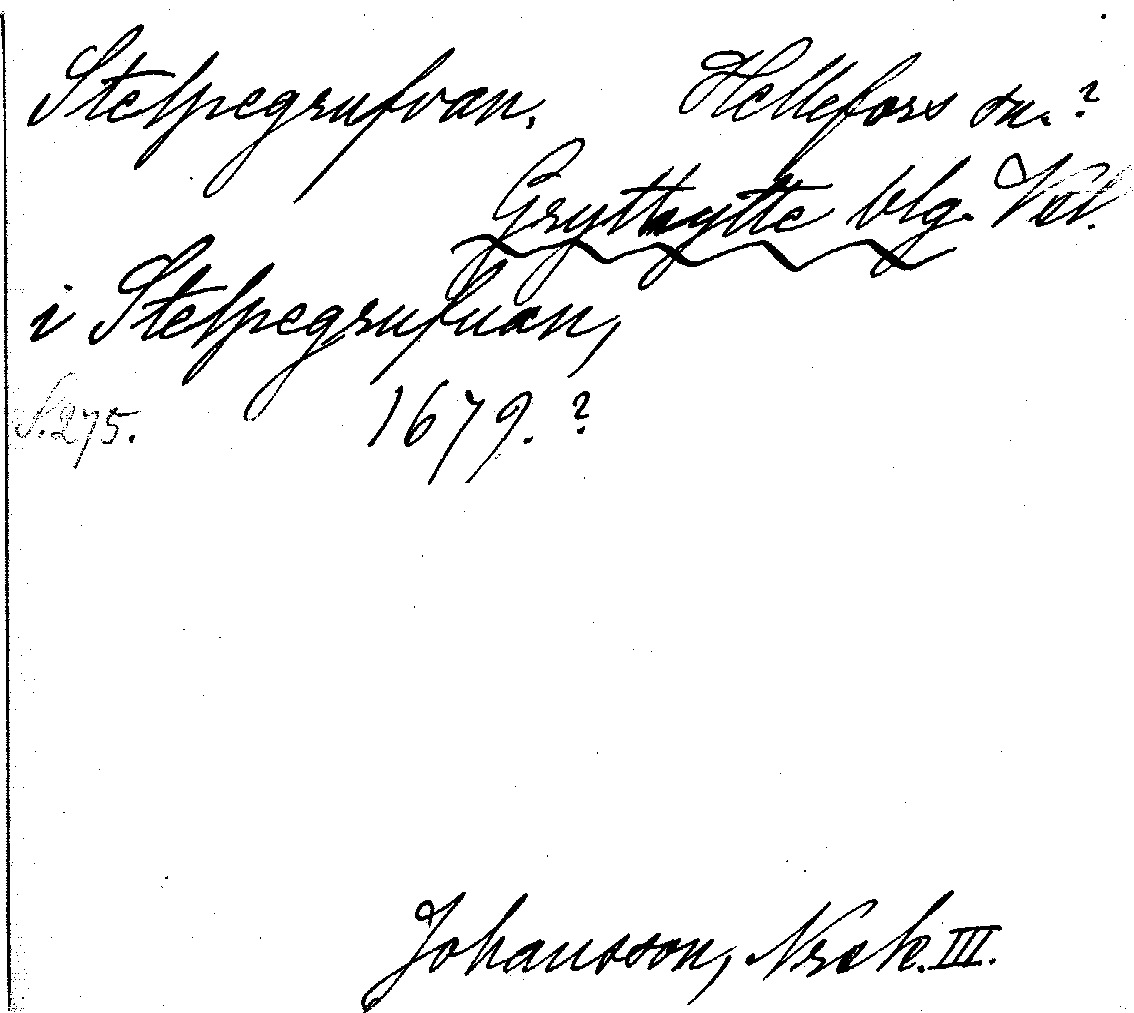 Stelpegrufvan. Hellefors sn.?
Grythytte blg. Vstl.
i Stelpegrufuan,
S. 275. 1679.?
Johansson, Norask. III.